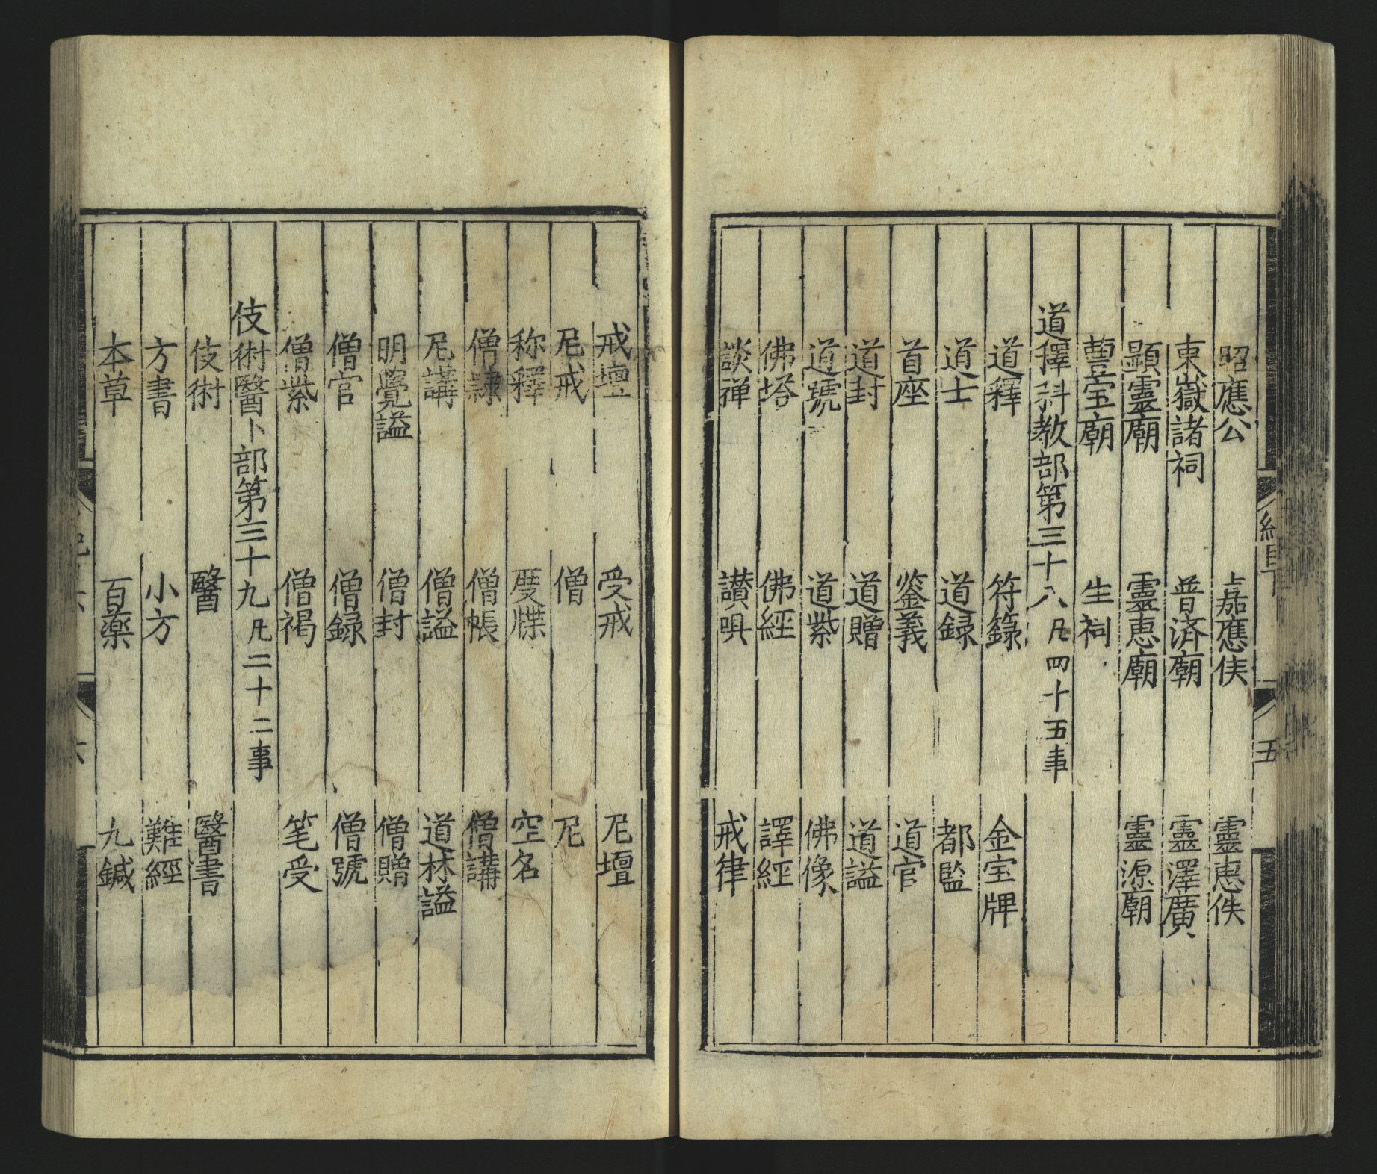 昭應公　嘉應侯　靈惠侯
東嶽諸祠　普済廟　靈澤廣
顯靈廟　靈恵廟　靈源廟
豊宝廟　生祠
道釋科教部第三十八凡四十五事
道釋　符籙　金宝牌
道士　道録　都監
首座　鉴義　道官
道封　道贈　道謚
道號　道紫　佛像
佛塔　佛經　譯經
談禅　讃唄　戒律
戒壇　受戒　尼壇
尼戒　僧　尼
称釋　度牒　空名
僧隷　僧帳　僧講
尼講　僧謚　道林謚
明覺謚　僧封　僧贈
僧官　僧録　僧號
僧紫　僧褐　笔受
伎術醫卜部第三十九凡二十二事
伎術　醫　醫書
方書　小方　難經
本草　百藥　九鍼
五
六